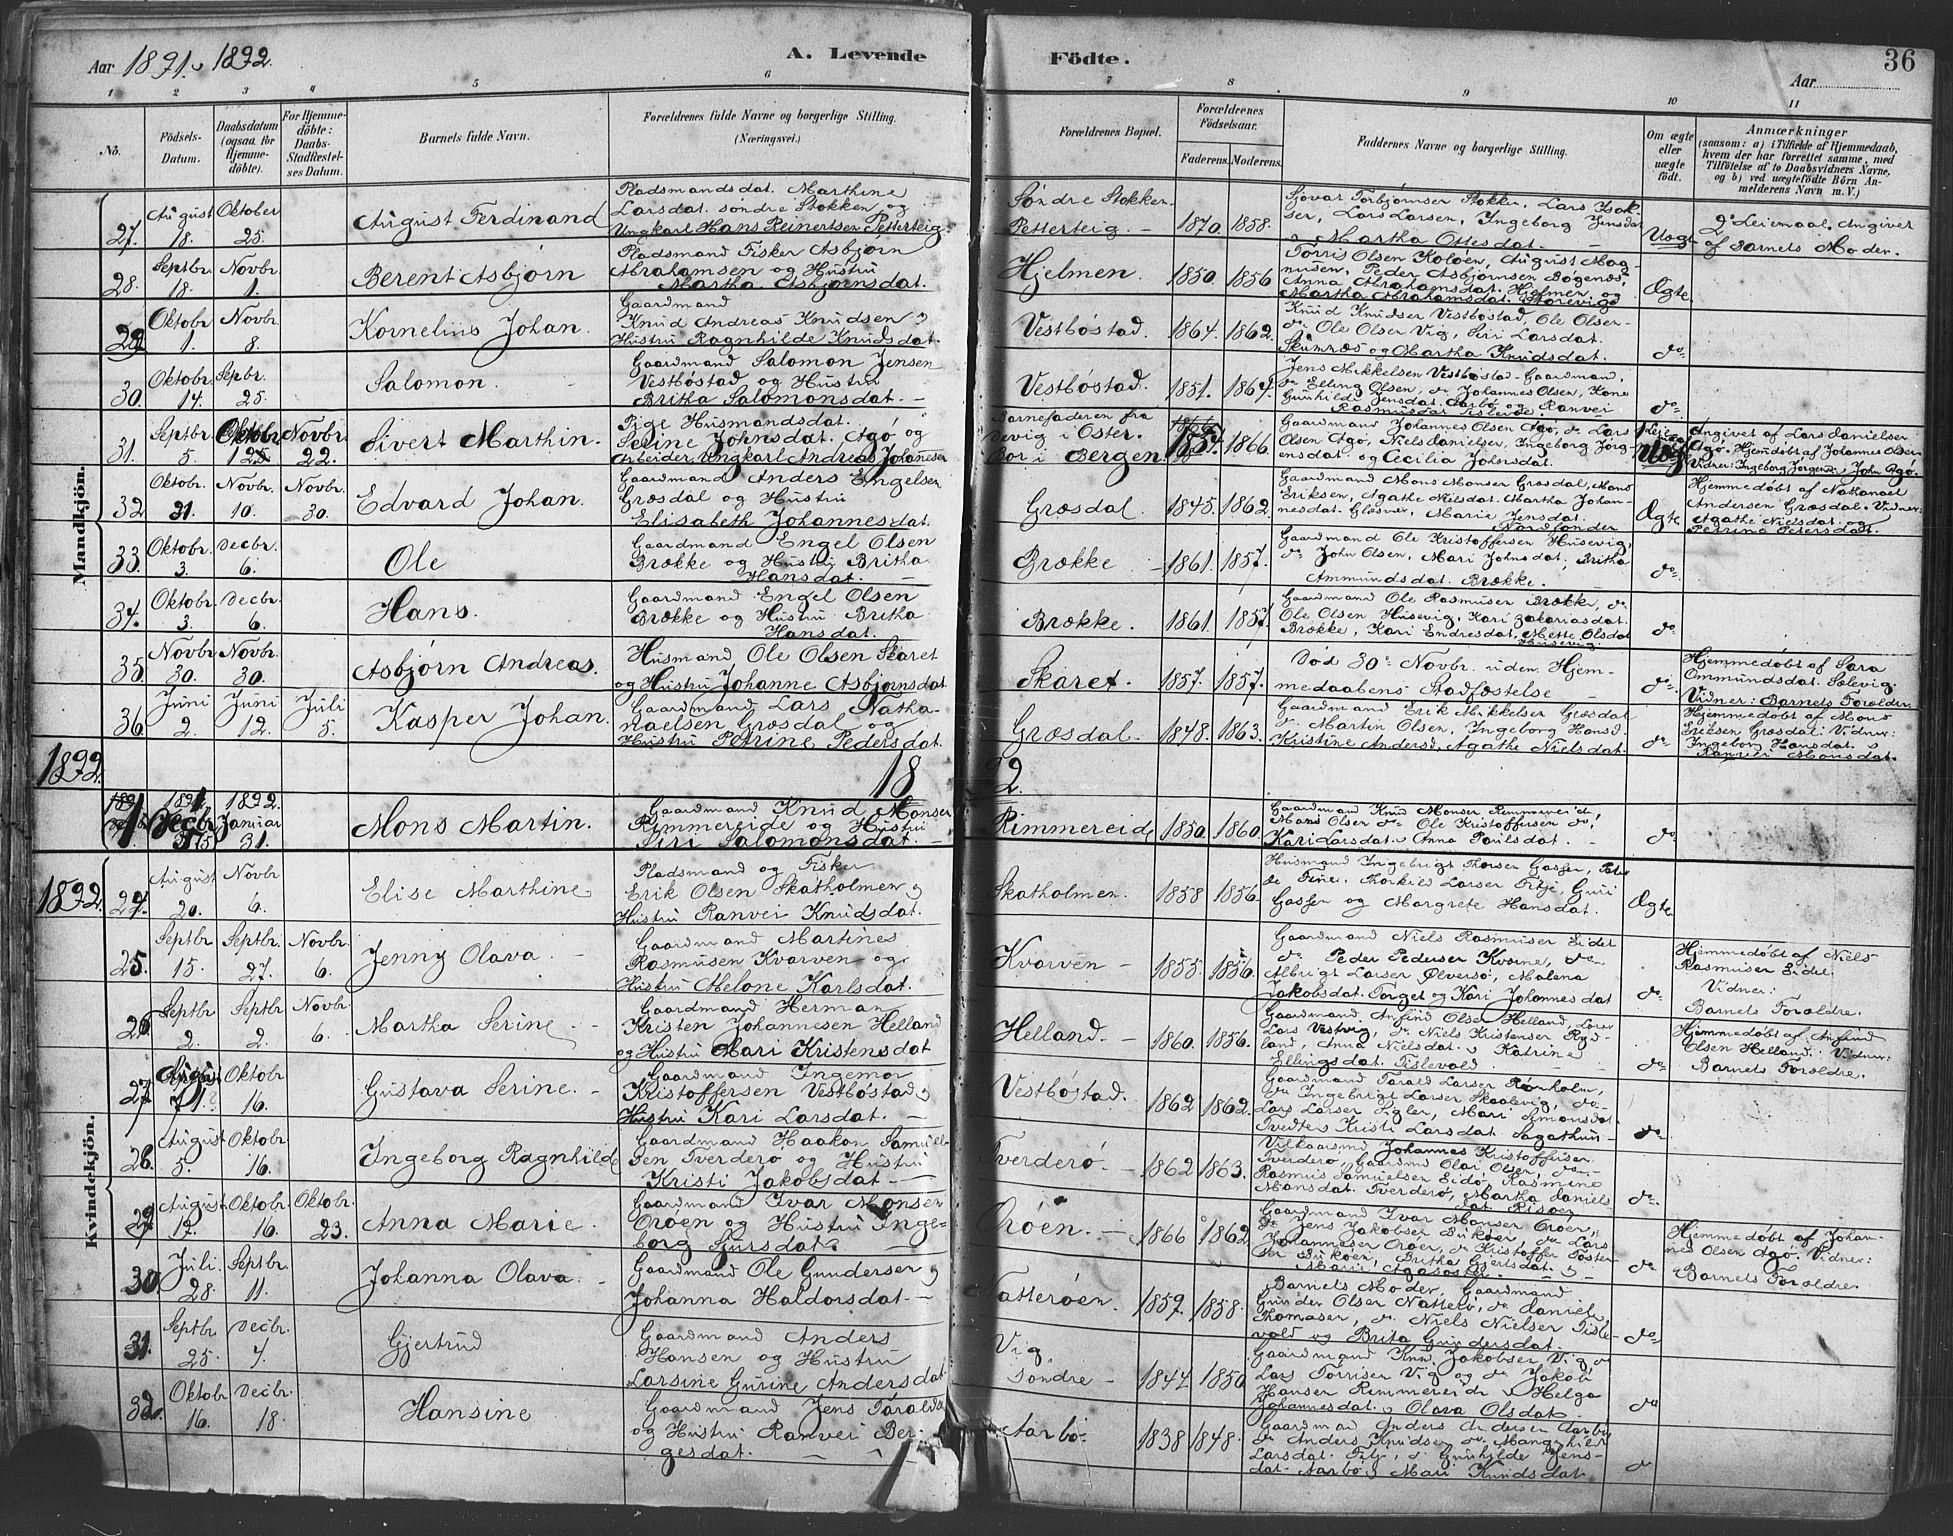 Aar 1891. 1892.
A. Levende Födte.
Aar
36
1 2 3 4 5 6 7 8 9 10 11
No.
Födsels-Datum.
Daabsdatum (ogsaa for Hjemme-döbte).
For Hjemme-döbte: Daabs-Stadfæstel-ses Datum.
Barnets fulde Navn.
Forældrenes fulde Navne og borgerlige Stilling. (Næringsvei.)
Forældrenes Bopæl.
Forældrenes Födselsaar.
Faderens. Moderens.
Faddernes Navne og borgerlige Stilling.
Om ægte eller uægte födt.
Anmærkninger
(saasom: a) i Tilfælde af Hjemmedaab, hvem der har forrettet samme, med Tilföielse af to Daabsvidners Navne, og b) ved uægtefödte Börn An-melderens Navn m. V.)
Mandkjön.
27. August 18. Oktober 25. August Ferdinand
Pladsmandsdat. Marthine
Larsdat. söndre Stokken og
Ungkarl Hans Reinertsen Petterteig.
Söndre Stokken.
Petterteig. 1870. 1858.
Lars Larsen, Ingeborg Jensdat
Martha Ottesdat.
Uægt
2det Leiemaal. Angivet
af Barnets Moder.
28. Septbr 18. Novbr. 1. Berent Asbjörn
Pladsmand Fisker Asbjörn
Abrahamsen og Hustru
Martha Asbjörnsdat.
Hjelmen. 1850. 1856
Torris Olsen Koloen, August Mag-
nusen, Peder Asbjörnsen Bögenæs,
Anna Abrahamsdat. Hjelmen og
Martha Abrahamsdat. Storevig
Ægte
29. Oktobr. 1. Novbr. 8. Kornelius Johan.
Gaardmand
Knud Andreas Knudsen
Hustru Ragnhilde Knudsdat.
Vestböstad. 1864. 1862.
Knud Knudsen Vestböstad, Ole Olsen
do Ole Olsen Vig, Siri Larsdat.
Skumsnæs og Martha Knudsdat.
do
30. Oktobr. 14. Septbr. 25. Salomon.
Gaardmand Salomon Jensen
Vestböstad og Hustru
Britha Salomonsdat.
Vestböstad. 1851. 1867.
Jens Mikkelsen Vestböstad Gaardmand,
do Elling Olsen, do Johannes Olsen, Kone
Gunhilde Jensdat. Aarbö og Ranvei
do
31. Septbr. 5. Oktobr. Novbr. 22. Sivert Marthin.
Pige Husmandsdat.
Serine Johnsdat. Agö og
Arbeider, Ungkarl Andreas Johannesen
Barnefaderen fra
Vevig i Oster.
Bor i Bergen. 1866.
Gaardmand Johannes Olsen Agö, do Lars
Olsen Agö, Niels Danielsen, Ingeborg Jörg-
ensdat og Cecilia Johnsdat.
Uægt
Angivet af Lars Danielsen
Agö. Hjemdöbt af Johannes Olsen
Vidner: Ingeborg Jörgensd. John Agö.
32. Oktobr. 31. Novbr. 10. Novbr. 30. Edvard Johan.
Gaardmand Anders Engelsen
Græsdal og Hustru
Elisabeth Johannesdat.
Græsdal. 1845. 1862.
Gaardmand Mons Monsen Græsdal, Mons
Eriksen, Agathe Nielsdat. Martha Johan-
nesdat. Glæsner, Marie Jensdat.
Ægte
Hjemmedöbt af Nathanael
Andersen Græsdal. Vidner:
Agathe Nielsdat. og
Petrina Petersdat.
33. Oktobr. 3. Decbr. 6. Ole
Gaardmand Engel Olsen
Brække og Hustru Britha
Hansdat.
Brække 1861. 1857.
Gaardmand Ole Kristoffersen Husevig,
do John Olsen, Mari Johnsdat, Britha
Ammundsdat. Brække.
do
34. Oktobr. 3. Decbr. 6. Hans.
Gaardmand Engel Olsen
Brække og Hustru Britha
Hansdat.
Brække. 1861. 1857.
Gaardmand Ole Rasmusen Brække, do
Ole Olsen Husevig, Kari Zakariasdat.
Brække, Kari Endresdat, Mette Olsdat
Husevig.
do
35. Novbr. 30. Novbr. 30. Asbjörn Andreas.
Husmand Ole Olsen Skaret
og Hustru Johanne Asbjörnsdat
Skaret. 1857. 1857.
Död 30te Novbr. uden Hjem-
medaabens Stadfæstelse
do
Hjemmedöbt af Sara
Ommundsdat. Sælevig.
Vidner: Barnets Forældre.
36. Juni 2. Juni 12. Juli 5. Kasper Johan.
Gaardmand Lars Natha-
naelsen Græsdal og
Hustru Petrine Pedersdat.
Græsdal. 1848. 1863.
Gaardmand Erik Mikkelsen Græsdal
do Martin Olsen, Ingeborg Hansd.
Kristine Andersd, Agathe Nielsdat.
do
Hjemmedöbt af Mons
Eriksen Græsdal: Vidner:
Ingeborg Hansdat. &
Ranvei Monsdat.
1892. 18 92.
1 1891. Decbr 1892. Januar 31. Mons Martin.
Gaardmand Knud Monsen
Rimmereide og Hustru
Siri Salomonsdat.
Rimmereide 1850. 1860.
Gaardmand Knud Monsen Rimmereide
Mons Olsen do Ole Kristoffersen do,
Kari Larsdat. Anna Poulsdat.
do
1892.
Kvindekjön.
24. August 20. Novbr 6. Elise Marthine
Pladsmand og Fisker
Erik Olsen Skatholmen
Hustru Ranvei Knudsdat.
Skatholmen. 1858 1856.
Husmand Ingebrigt Thorsen Gasser,
Thorkild Larsen Fitje, Guri
Gasser og Margrete Hansdat.
Ægte
25. Septbr. 15. Septbr. 27. Novbr. 6. Jenny Olava.
Gaardmand Martines
Rasmusen Kvarven og
Hustru Melone Karlsdat.
Kvarven 1855. 1856.
Gaardmand Niels Rasmusen Eidet
do Peder Pedersen Kvarne, do
Albrigt Larsen Ölversö, Malena
Jakobsdat. Torget og Kari Johannesdat
do
Hjemmedöbt af Niels
Rasmusen Eidet.
Vidner:
Barnets Forældre.
26 Septbr 2. Septbr 2. Novbr 6. Martha Serine
Gaardmand Herman
Kristen Johannesen Helland
og Hustru Mari Kristensdat
Helland. 1860. 1856.
Gaardmand. Anfind Olsen Helland,
Lars Vestvig, do Niels Kristensen Ryd-
land, Anna Nielsdat. Katrine
Ellingsdat. Tislevold
do
Hjemmedöbt af Anfind
Olsen Helland: Vidner:
Barnets Forældre.
27 Oktobr 16. Gustava Serine.
Gaardmand Ingemor
Kristoffersen Vestböstad
Hustru Kari Larsdat.
Vestbostad. 1862 1862.
Gaardmand Tarald Larsen Rörholm,
do Ingebrigt Larsen Skaalevig, do
Lars Larsen Sigler, Mari Simonsdat
Tvedten Kristi Larsdat.
do
28. August 5. Oktobr 16. Ingeborg Ragnhilde
Gaardmand Haakon Samuel-
sen Tverderö og Hustru
Kristi Jakobsdat
Tverderö. 1862 1863.
Vilkaarsmd Johannes Kristoffersen
Tverderö, Gaardmd Olai Olsen, do
Rasmus Samuelsen Eidö, Rasmine
Monsdat. Tverderö, Martha Daniels-
dat. Risöen
do
29 August 17. Oktobr. 16. Oktobr 23. Anna Marie.
Gaardmand Ivar Monsen
Oröen og Hustru Inge-
borg Sjursdat.
Oröen. 1866 1862
Gaardmand Ivar Monsen Oröen,
do Jens Jakobsen Buköen, do Lars
Johannesen Oröen, do Kristoffer
Buköen, Britha Gjertsdat.
do
Hjemmedöbt af Johan-
nes Olsen Agö. Vidner:
Barnets Forældre.
30. Juli. 28. Septbr. 11. Johanna Olava.
Gaardmand Ole Gundersen
Johanna Haldorsdat.
Natteröen. 1859. 1858.
Barnets Moder, Gaardmand
Gunder Olsen Natterö, do Daniel
Thomasen, do Niels Nielsen Tisle-
vold og Brita Gundersdat.
do
31. Septbr 25. Decbr. 4. Gjertrud
Gaardmand Anders
Hansen og Hustru
Larsine Gurine Andersdat
Vig
Söndre 1844 1850
Gaardmand Knud Jakobsen Vig
Lars Torrisen Vig og do Jakob
Hansen Rimmereide Helga
Johannesdat. Olava Olsdat
do
32. Oktobr 16. Decbr. 18. Hansine
Gaardmand Jens Taralds.
og Hustru Ranvei Ber-
gesdat.
Aarbö 1838 1848.
Gaardman Anders Andersen Aarbö
do Anders Knudsen,
Larsdat. Gunhilde Jens-
dat Aarbö, Mari Knudsdat
do